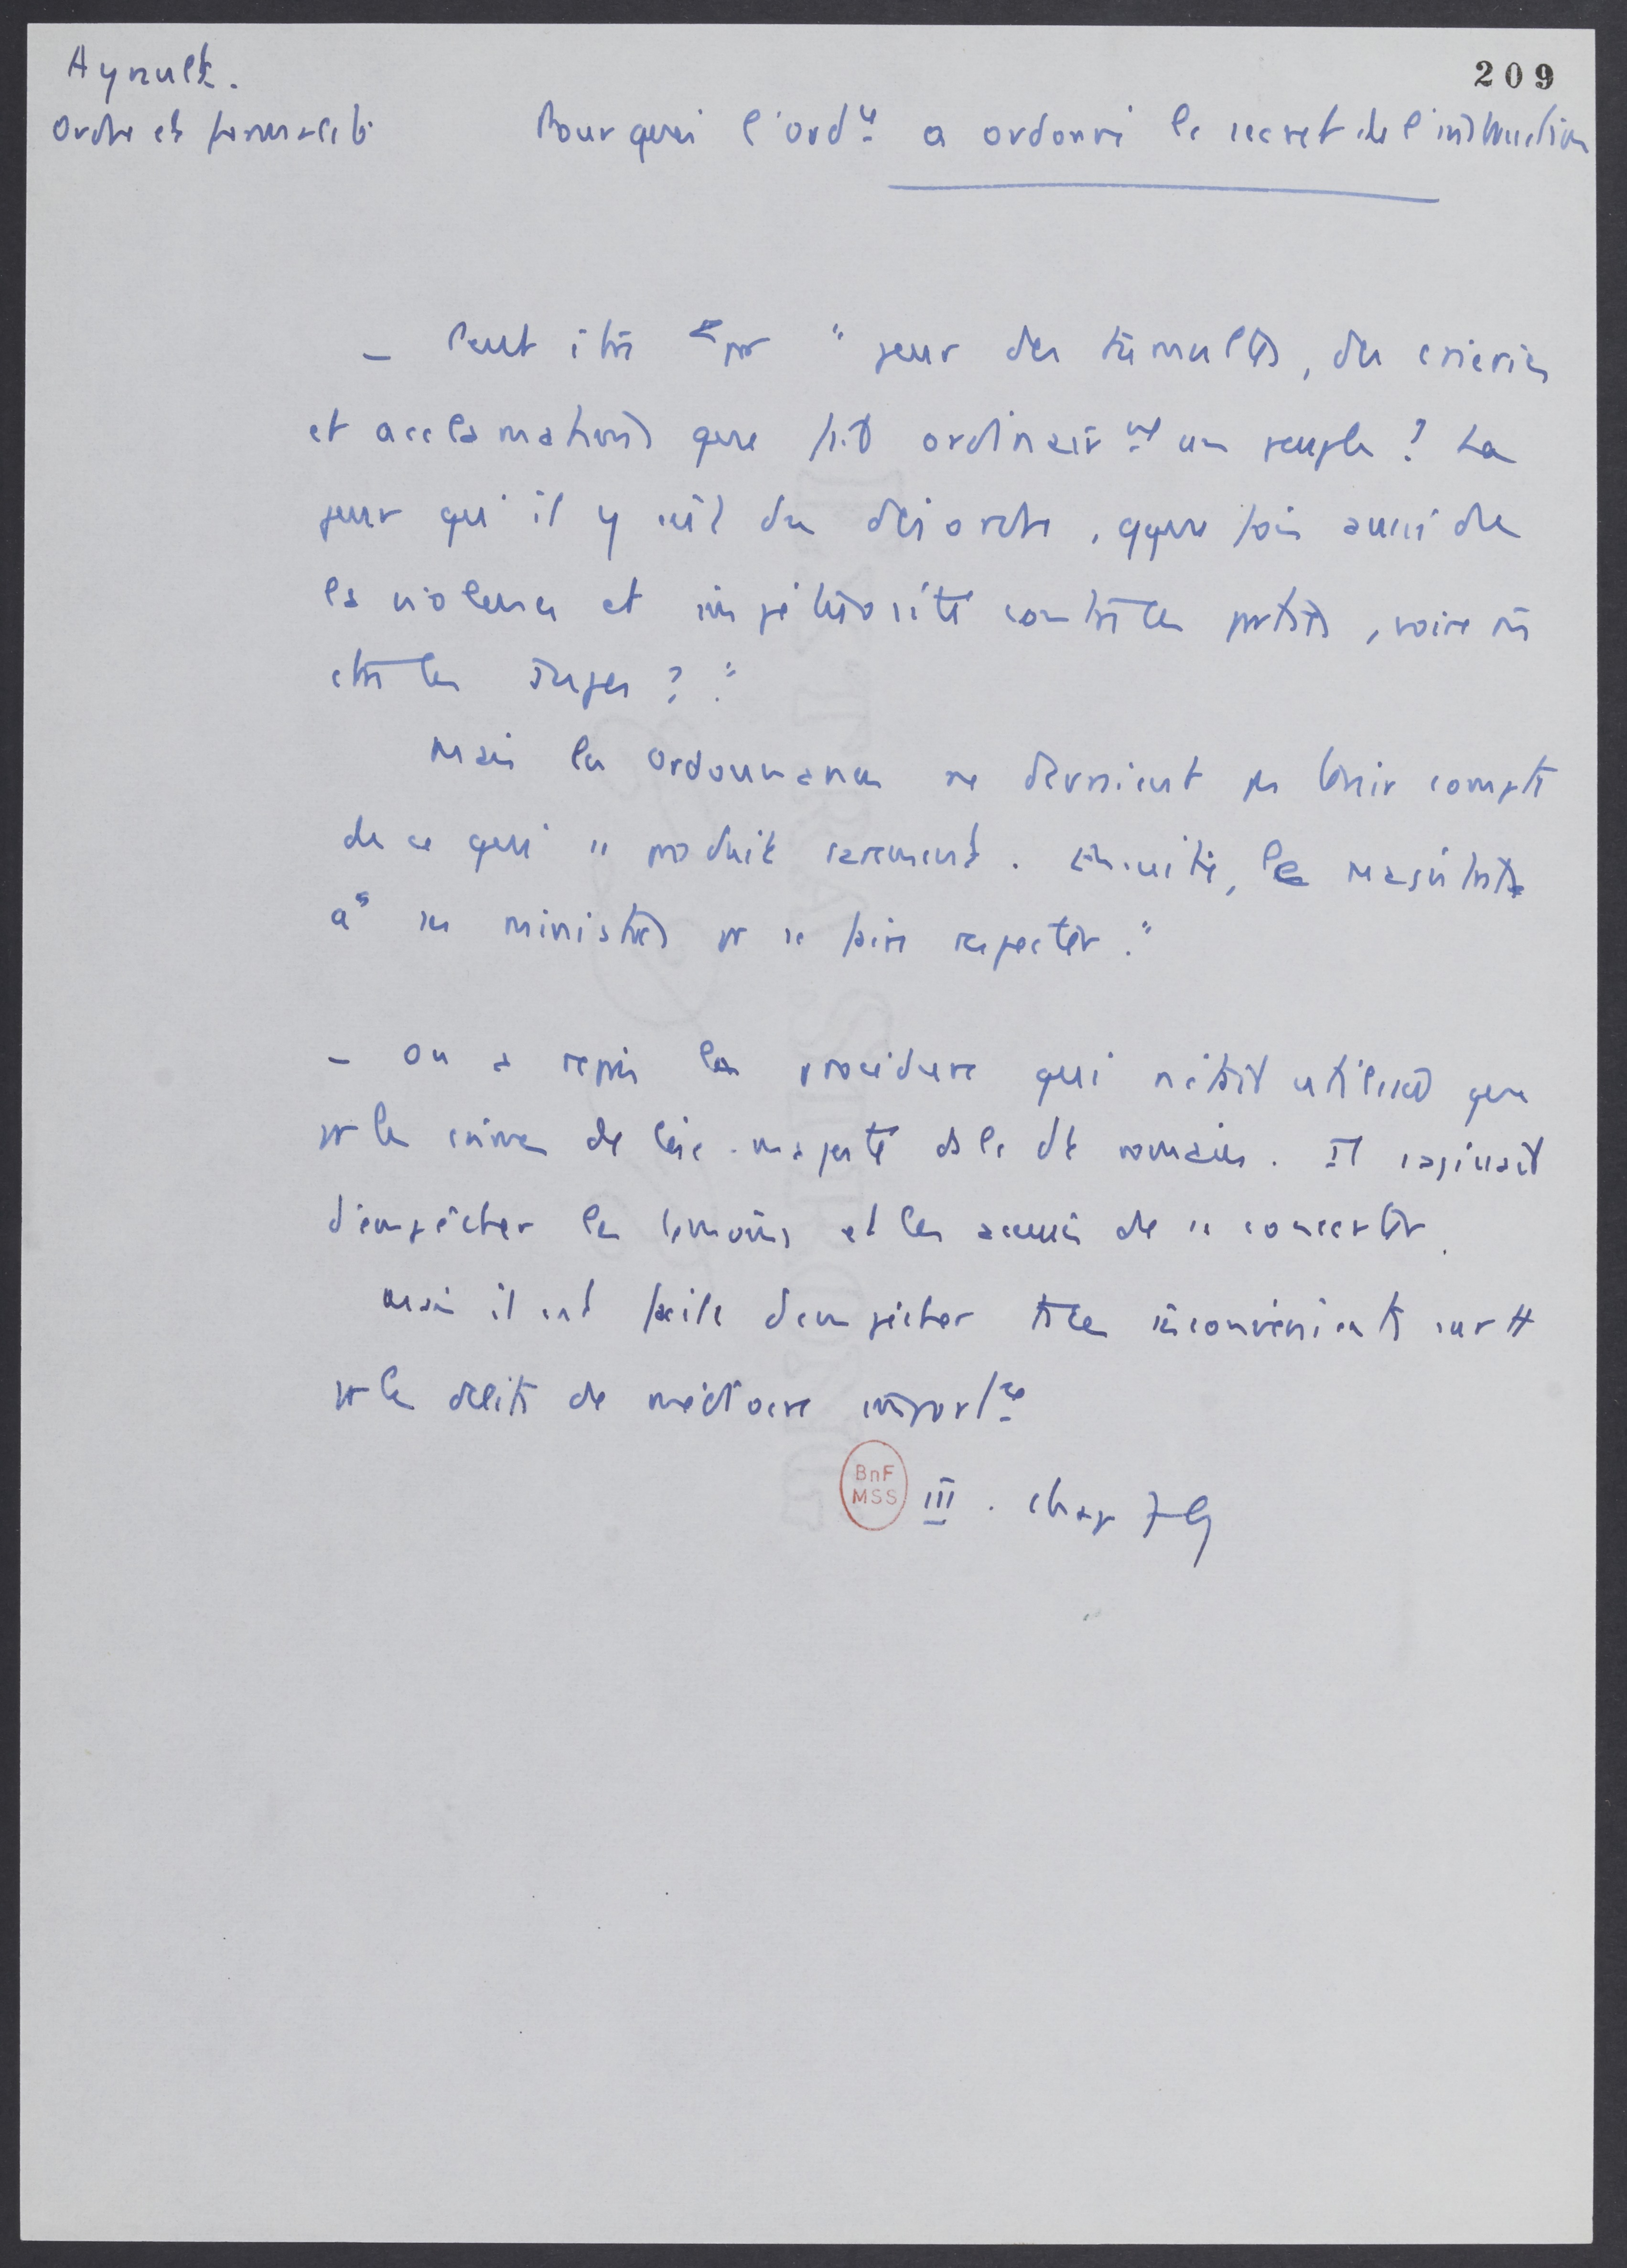 Ayrault.
209
Ordre et formalité
Pourquoi l'ordce a ordonné le secret de l'instruction
– Peut être pr "peur des tumultes, des crieries
et acclamations que fait ordinairmt un peuple ? La
peur qu'il y eût du désordre, qque fois aussi de
la violence et impétuosité contre les parties, voire
ctre les Juges ?"
Mais les ordonnances ne devraient pas tenir compte
de ce qui se produit rarement. Ensuite, le magistrat
a "ses ministres pr se faire respecter."
– On a repris la procédure qui n'était utilisée que
pr les crimes de lèse-majesté ds le dt romain. Il s'agissait
d'empêcher les témoins et les accusés de se concerter.
Mais il est facile d'empêcher ts ces inconvénients surtt
pr les délits de médiocre importce
BnF
MSS
III. chap 79